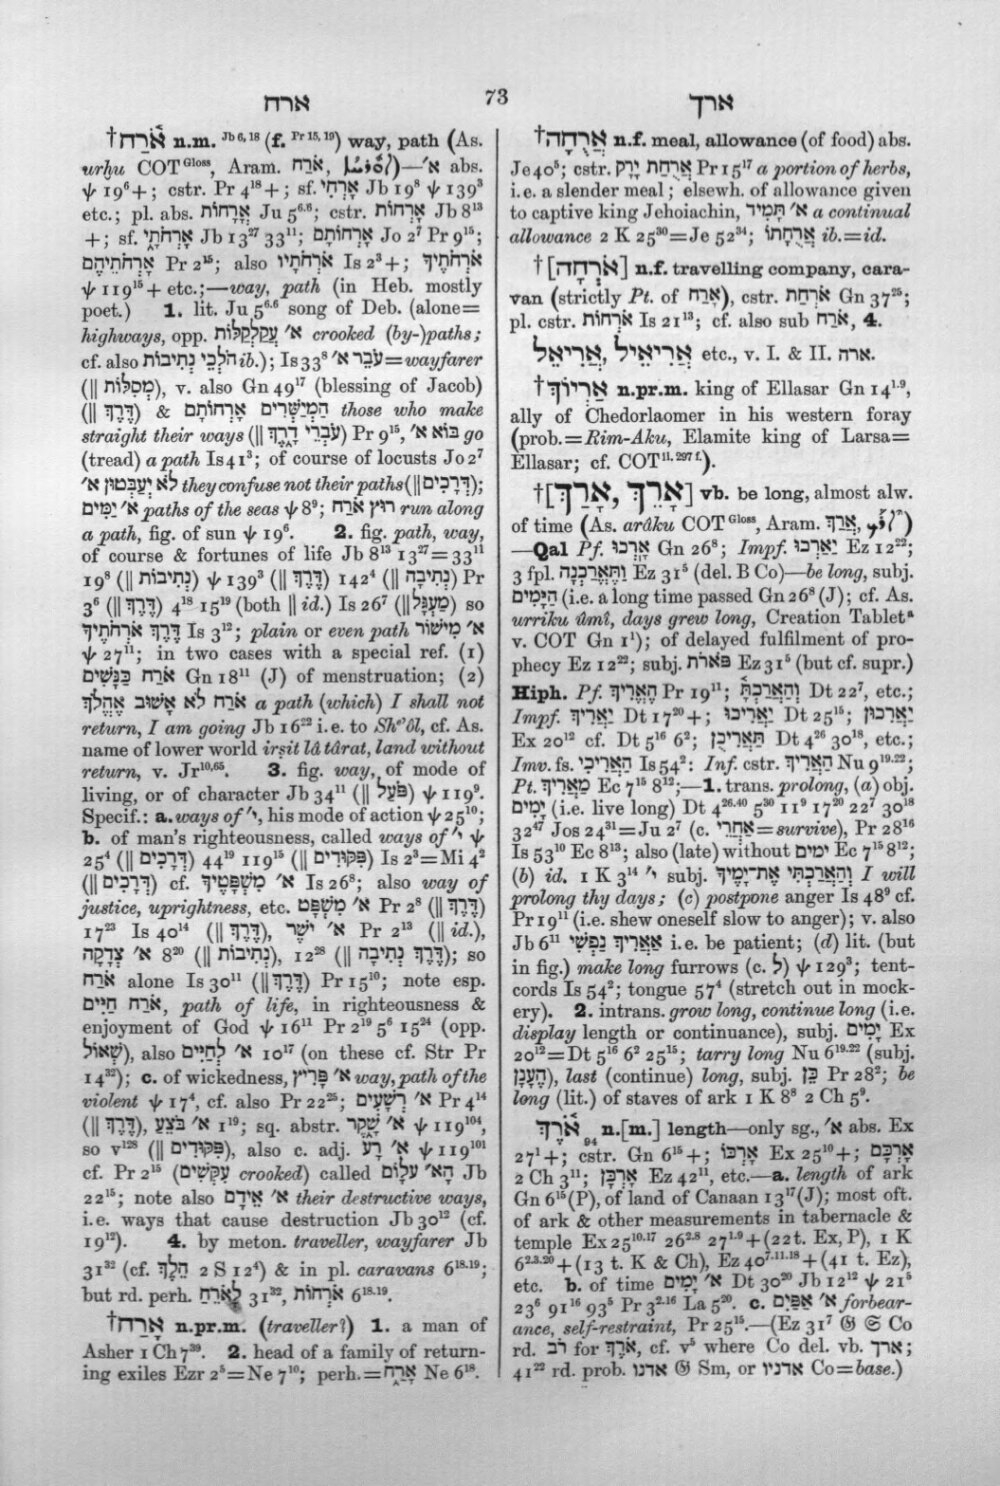 ארח
73
ארך
†אֹ֫רַח n.m. Jb 6, 18 (f. Pr 15, 19) way, path (As.
urḫu COT Gloss, Aram. אֹרַח, )—א׳ abs.
ψ 19⁶+; cstr. Pr 4¹⁸+; sf. אָרְחִי Jb 19⁸ ψ 139³
etc.; pl. abs. אֳרָחוֹת Ju 5⁶·⁶; cstr. אָרְחוֹת Jb 8¹³
+; sf. אָרְחֹתָי Jb 13²⁷ 33¹¹; אָרְחוֹתָם Jo 2⁷ Pr 9¹⁵;
אָרְחֹתֵיהֶם Pr 2¹⁵; also אֹרְחֹתָיו Is 2³+; אֹרְחֹתֶיךָ
ψ 119¹⁵+ etc.;—way, path (in Heb. mostly
poet.) 1. lit. Ju 5⁶·⁶ song of Deb. (alone=
highways, opp. א׳ עֲקַלְקַלּוֹת crooked (by-)paths;
cf. also הֹלְכֵי נְתִיבוֹת ib.); Is 33⁸ עֹבֵר א׳=wayfarer
(‖ מְסִלּוֹת), v. also Gn 49¹⁷ (blessing of Jacob)
(‖ דֶּרֶךְ) & הַמְיַשְּׁרִים אָרְחוֹתָם those who make
straight their ways (‖ עֹבְרֵי דָרֶךְ) Pr 9¹⁵, בּוֹא א׳ go
(tread) a path Is 41³; of course of locusts Jo 2⁷
לֹא יְעַבְּטוּן א׳ they confuse not their paths (‖ דְּרָכִים);
א׳ יַמִּים paths of the seas ψ 8⁹; רוּץ אֹרַח run along
a path, fig. of sun ψ 19⁶. 2. fig. path, way,
of course & fortunes of life Jb 8¹³ 13²⁷=33¹¹
19⁸ (‖ נְתִיבוֹת) ψ 139³ (‖ דֶּרֶךְ) 142⁴ (‖ נְתִיבָה) Pr
3⁶ (‖ דֶּרֶךְ) 4¹⁸ 15¹⁹ (both ‖ id.) Is 26⁷ (‖ מַעְגָּל) so
דֶּרֶךְ אֹרְחֹתֶיךָ Is 3¹²; plain or even path א׳ מִישׁוֹר
ψ 27¹¹; in two cases with a special ref. (1)
אֹרַח כַּנָּשִׁים Gn 18¹¹ (J) of menstruation; (2)
אֹרַח לֹא אָשׁוּב אֶהֱלֹךְ a path (which) I shall not
return, I am going Jb 16²² i.e. to Shᵉ’ôl, cf. As.
name of lower world irṣit lâ târat, land without
return, v. Jr¹⁰,⁶⁵. 3. fig. way, of mode of
living, or of character Jb 34¹¹ (‖ פֹּעַל) ψ 119⁹.
Specif.: a. ways of י״, his mode of action ψ 25¹⁰;
b. of man’s righteousness, called ways of י״ ψ
25⁴ (‖ דְּרָכִים) 44¹⁹ 119¹⁵ (‖ פִּקּוּדִים) Is 2³=Mi 4²
(‖ דְּרָכִים) cf. א׳ מִשְׁפָּטֶיךָ Is 26⁸; also way of
justice, uprightness, etc. א׳ מִשְׁפָּט Pr 2⁸ (‖ דֶּרֶךְ)
17²³ Is 40¹⁴ (‖ דֶּרֶךְ), א׳ יֹשֶׁר Pr 2¹³ (‖ id.),
א׳ צְדָקָה 8²⁰ (‖ נְתִיבוֹת), 12²⁸ (‖ דֶּרֶךְ נְתִיבָה); so
אֹרַח alone Is 30¹¹ (‖ דֶּרֶךְ) Pr 15¹⁰; note esp.
אֹרַח חַיִּים, path of life, in righteousness &
enjoyment of God ψ 16¹¹ Pr 2¹⁹ 5⁶ 15²⁴ (opp.
שְׁאוֹל), also א׳ לְחַיִּים 10¹⁷ (on these cf. Str Pr
14³²); c. of wickedness, א׳ פָּרִיץ way, path of the
violent ψ 17⁴, cf. also Pr 22²⁵; א׳ רְשָׁעִים Pr 4¹⁴
(‖ דֶּרֶךְ), א׳ בֹּצֵעַ 1¹⁹; sq. abstr. א׳ שָׁקֶר ψ 119¹⁰⁴,
so v¹²⁸ (‖ פִּקּוּדִים), also c. adj. א׳ רָע ψ 119¹⁰¹
cf. Pr 2¹⁵ (עִקְּשִׁים crooked) called הָא׳ עוֹלָם Jb
22¹⁵; note also א׳ אֵידָם their destructive ways,
i.e. ways that cause destruction Jb 30¹² (cf.
19¹²). 4. by meton. traveller, wayfarer Jb
31³² (cf. הֵלֶךְ 2 S 12⁴) & in pl. caravans 6¹⁸·¹⁹;
but rd. perh. לָאֹרֵחַ 31³², אֹרְחוֹת 6¹⁸·¹⁹.
†אָרַח n.pr.m. (traveller?) 1. a man of
Asher 1 Ch 7³⁹. 2. head of a family of return-
ing exiles Ezr 2⁵=Ne 7¹⁰; perh.=אָרַח Ne 6¹⁸.
†אֲרֻחָה n.f. meal, allowance (of food) abs.
Je 40⁵; cstr. אֲרֻחַת יָרָק Pr 15¹⁷ a portion of herbs,
i.e. a slender meal; elsewh. of allowance given
to captive king Jehoiachin, א׳ תָּמִיד a continual
allowance 2 K 25³⁰=Je 52³⁴; אֲרֻחָתוֹ ib.=id.
†[אֹרְחָה] n.f. travelling company, cara-
van (strictly Pt. of אָרַח), cstr. אֹרְחַת Gn 37²⁵;
pl. cstr. אֹרְחוֹת Is 21¹³; cf. also sub אֹרַח, 4.
אֲרִיאֵיל, אֲרִיאֵל etc., v. I. & II. ארה.
†אַרְיוֹךְ n.pr.m. king of Ellasar Gn 14¹·⁹,
ally of Chedorlaomer in his western foray
(prob.=Rim-Aku, Elamite king of Larsa=
Ellasar; cf. COT II. 297 f.).
†[אָרֵךְ, אָרַךְ] vb. be long, almost alw.
of time (As. arâku COT Gloss, Aram. אֲרַךְ, )
—Qal Pf. אָרְכוּ Gn 26⁸; Impf. יַאַרְכוּ Ez 12²²;
3 fpl. וַתֶּאֱרַכְנָה Ez 31⁵ (del. B Co)—be long, subj.
הַיָּמִים (i.e. a long time passed Gn 26⁸ (J); cf. As.
urriku ûmî, days grew long, Creation Tabletᵃ
v. COT Gn 1¹); of delayed fulfilment of pro-
phecy Ez 12²²; subj. פֹּארֹת Ez 31⁵ (but cf. supr.)
Hiph. Pf. הֶאֱרִיךְ Pr 19¹¹; וְהַאֲרַכְתָּ Dt 22⁷, etc.;
Impf. יַאֲרִיךְ Dt 17²⁰+; יַאֲרִיכוּ Dt 25¹⁵; יַאֲרִכוּן
Ex 20¹² cf. Dt 5¹⁶ 6²; תַּאֲרִיכֻן Dt 4²⁶ 30¹⁸, etc.;
Imv. fs. הַאֲרִיכִי Is 54²: Inf. cstr. הַאֲרִיךְ Nu 9¹⁹·²²;
Pt. מַאֲרִיךְ Ec 7¹⁵ 8¹²;—1. trans. prolong, (a) obj.
יָמִים (i.e. live long) Dt 4²⁶·⁴⁰ 5³⁰ 11⁹ 17²⁰ 22⁷ 30¹⁸
32⁴⁷ Jos 24³¹=Ju 2⁷ (c. אַחֲרֵי=survive), Pr 28¹⁶
Is 53¹⁰ Ec 8¹³; also (late) without ימים Ec 7¹⁵ 8¹²;
(b) id. 1 K 3¹⁴ י״ subj. וְהַאֲרַכְתִּי אֶת־יָמֶיךָ I will
prolong thy days; (c) postpone anger Is 48⁹ cf.
Pr 19¹¹ (i.e. shew oneself slow to anger); v. also
Jb 6¹¹ אַאֲרִיךְ נַפְשִׁי i.e. be patient; (d) lit. (but
in fig.) make long furrows (c. לְ) ψ 129³; tent-
cords Is 54²; tongue 57⁴ (stretch out in mock-
ery). 2. intrans. grow long, continue long (i.e.
display length or continuance), subj. יָמִים Ex
20¹²=Dt 5¹⁶ 6² 25¹⁵; tarry long Nu 9¹⁹·²² (subj.
הֶעָנָן), last (continue) long, subj. כֵּן Pr 28²; be
long (lit.) of staves of ark 1 K 8⁸ 2 Ch 5⁹.
אֹ֫רֶךְ 94 n.[m.] length—only sg., א׳ abs. Ex
27¹+; cstr. Gn 6¹⁵+; אָרְכּוֹ Ex 25¹⁰+; אָרְכָּם
2 Ch 3¹¹; אָרְכָּן Ez 42¹¹, etc.—a. length of ark
Gn 6¹⁵ (P), of land of Canaan 13¹⁷ (J); most oft.
of ark & other measurements in tabernacle &
temple Ex 25¹⁰·¹⁷ 26²·⁸ 27¹·⁹+(22 t. Ex, P), 1 K
6²·³·²⁰+(13 t. K & Ch), Ez 40⁷·¹¹·¹⁸+(41 t. Ez),
etc. b. of time א׳ יָמִים Dt 30²⁰ Jb 12¹² ψ 21⁵
23⁶ 91¹⁶ 93⁵ Pr 3²·¹⁶ La 5²⁰. c. א׳ אַפַּיִם forbear-
ance, self-restraint, Pr 25¹⁵.—(Ez 31⁷ 𝔊 𝔖 Co
rd. רֹב for אֹרֶךְ, cf. v⁵ where Co del. vb. ארך;
41²² rd. prob. אדנו 𝔊 Sm, or אדניו Co=base.)